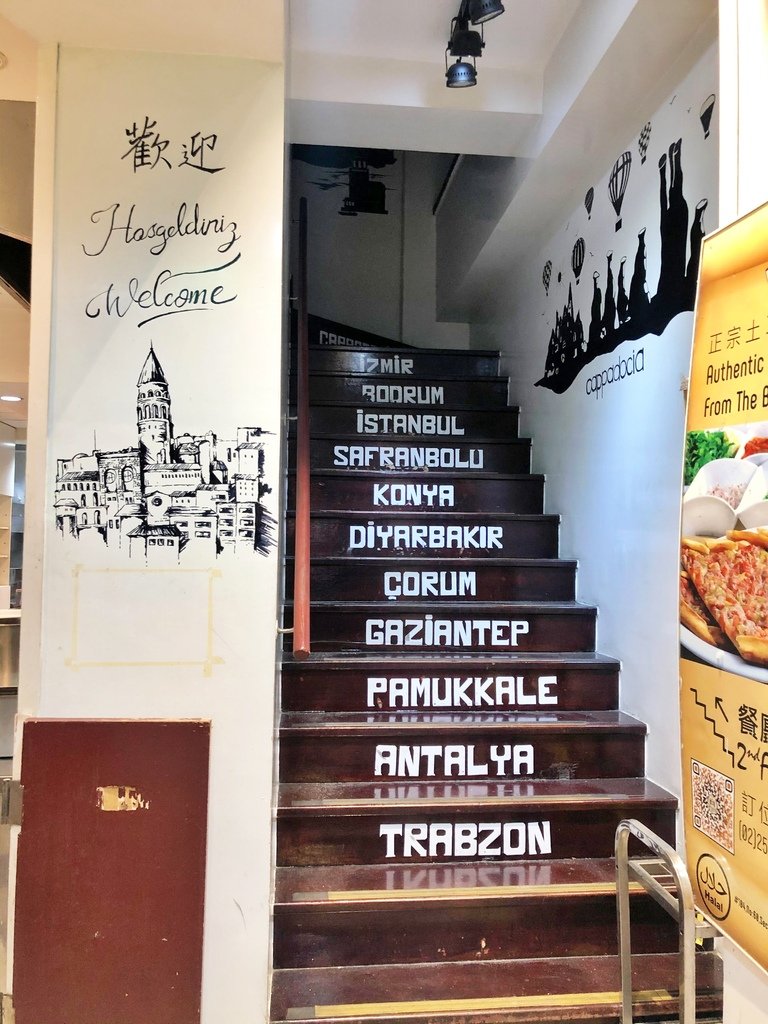 歡迎
Hoşgeldiniz
Welcome
İZMİR
BODRUM
İSTANBUL
SAFRANBOLU
KONYA
DİYARBAKIR
ÇORUM
GAZİANTEP
PAMUKKALE
ANTALYA
TRABZON
cappadocia
正宗土
Authentic
From The
餐廳
2nd
訂位
(02)25
حلال
Halal